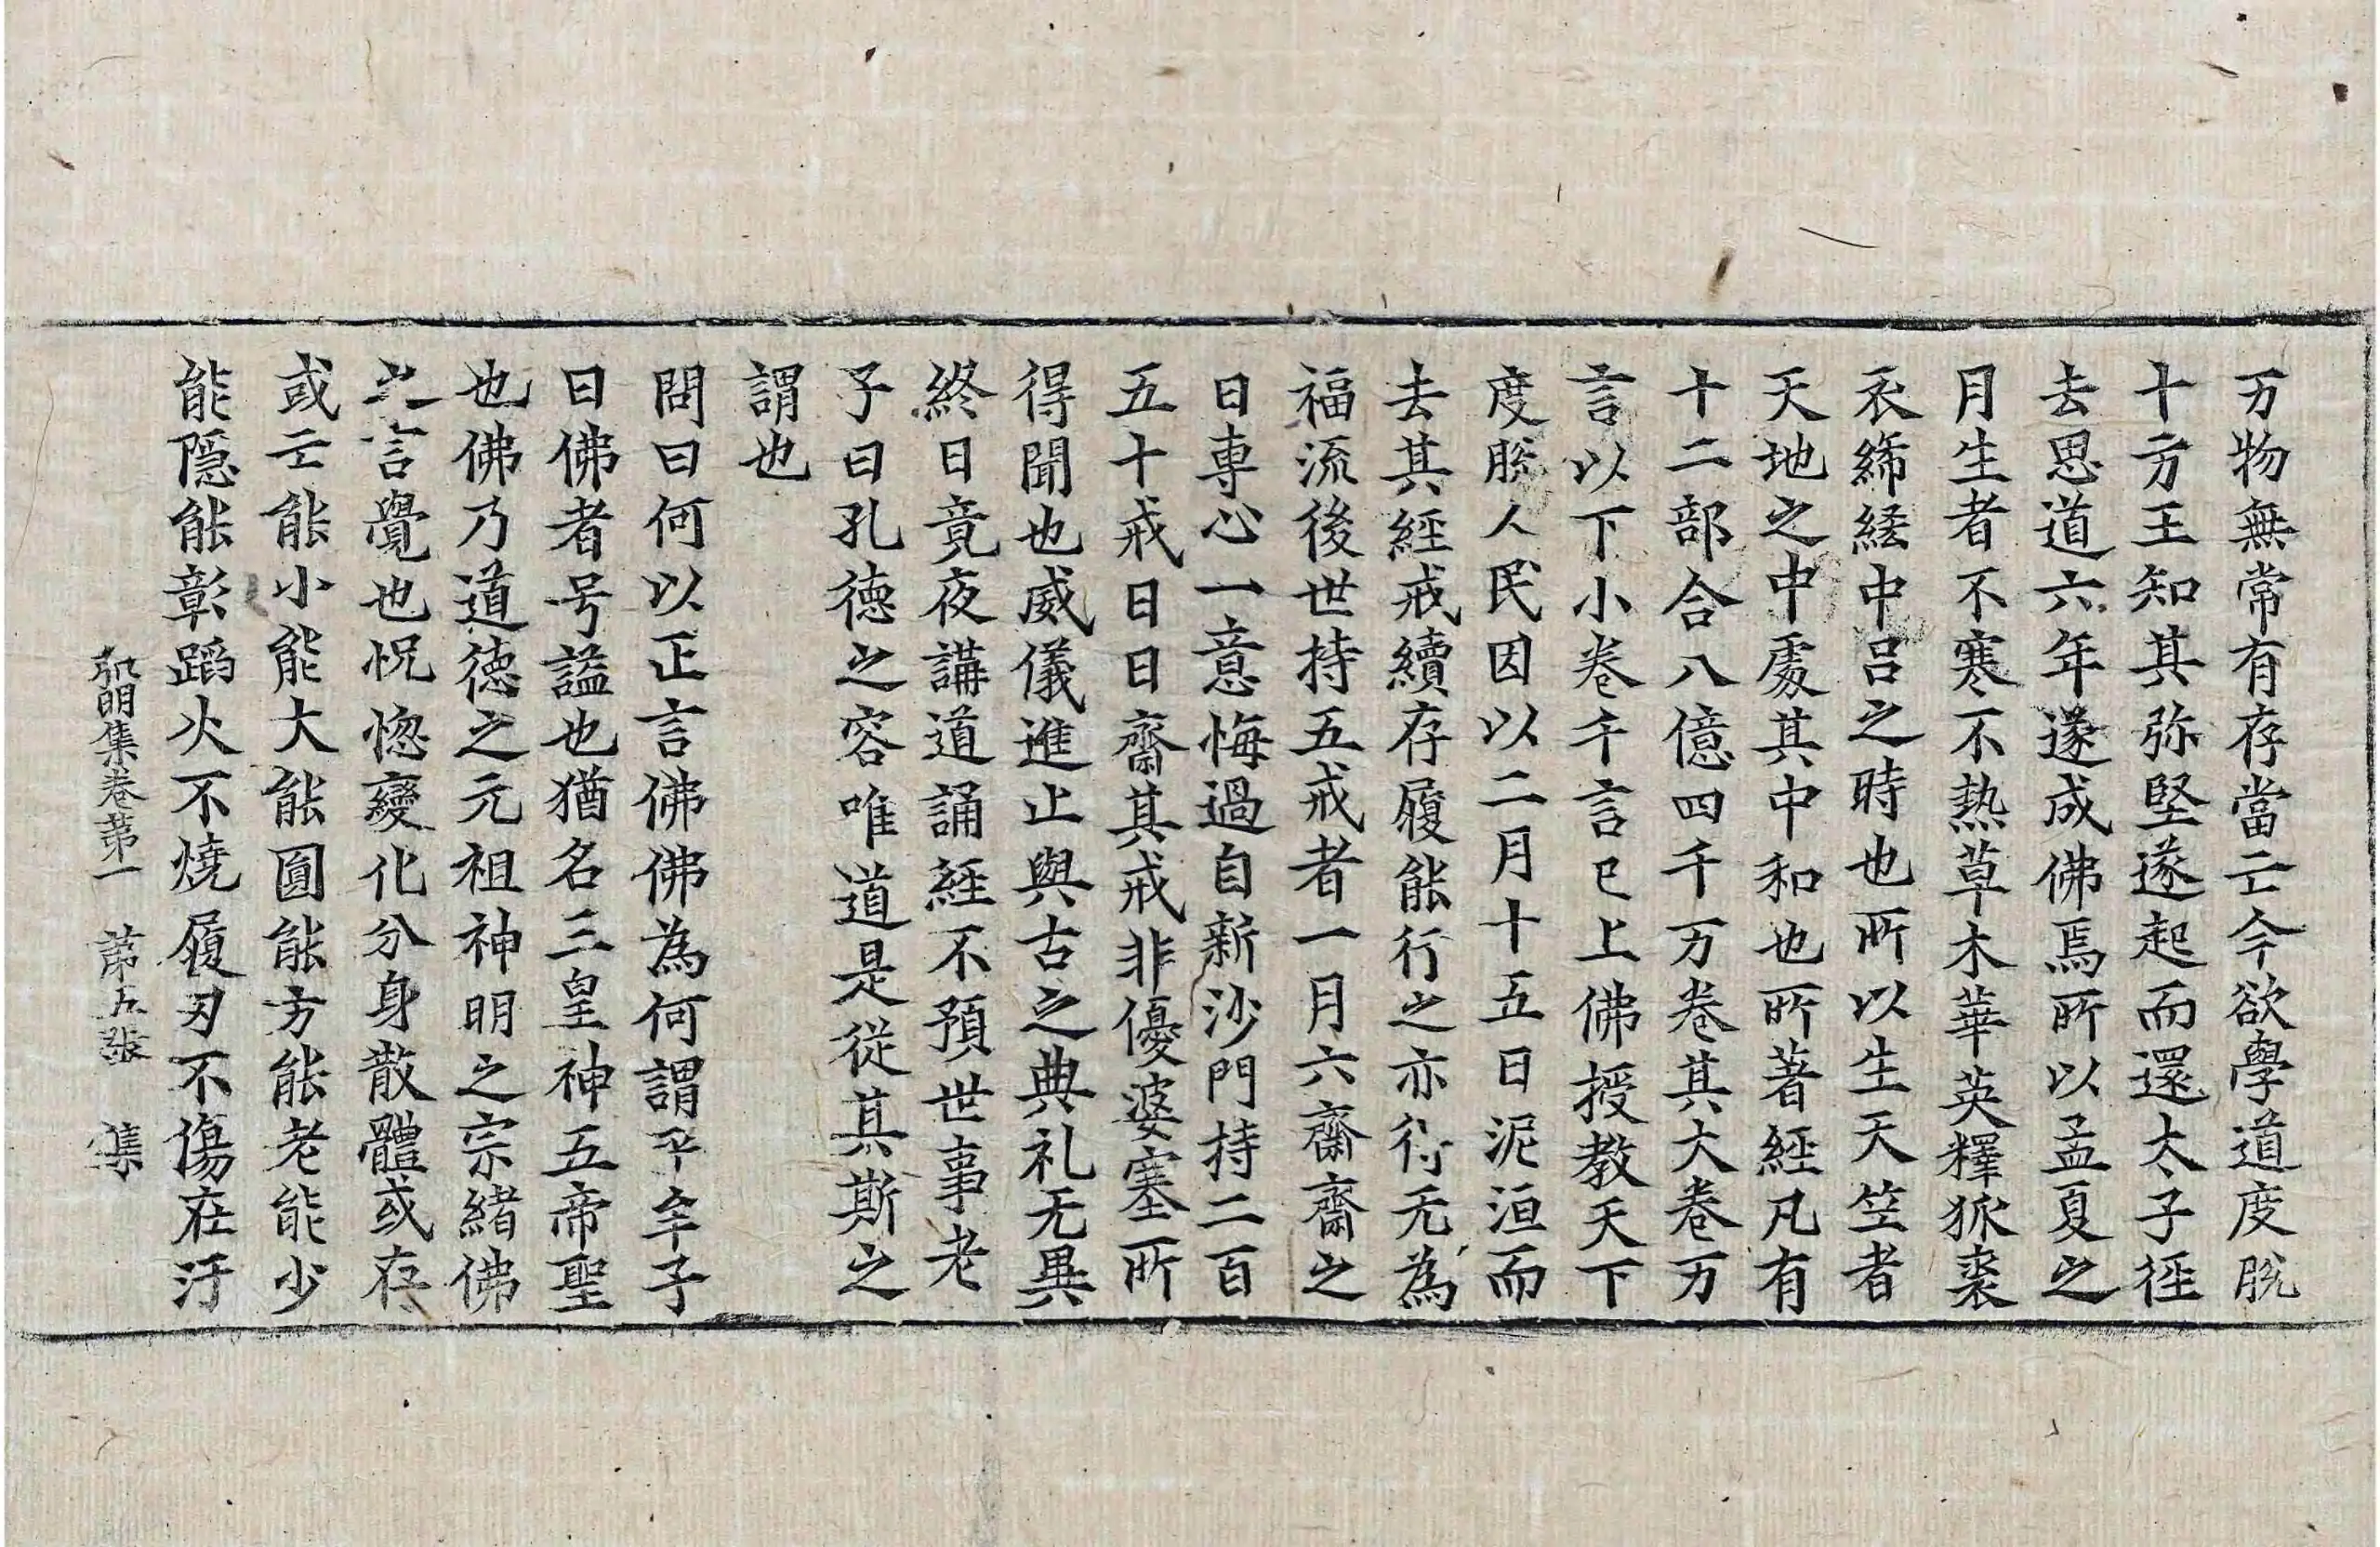 万物無常有存當亡今欲學道度脫
十方王知其弥堅遂起而還太子徑
去思道六年遂成佛焉所以孟夏之
月生者不寒不熱草木華英釋狐裘
衣絺綌中呂之時也所以生天竺者
天地之中處其中和也所著經凡有
十二部合八億四千万卷其大卷万
言以下小卷千言已上佛授教天下
度脫人民因以二月十五日泥洹而
去其經戒續存履能行之亦得无為
福流後世持五戒者一月六齋齋之
日專心一意悔過自新沙門持二百
五十戒日日齋其戒非優婆塞所
得聞也威儀進止與古之典礼无異
終日竟夜講道誦經不預世事老
子曰孔德之容唯道是從其斯之
謂也
問曰何以正言佛佛為何謂乎牟子
曰佛者号謚也猶名三皇神五帝聖
也佛乃道德之元祖神明之宗緒佛
之言覺也怳惚變化分身散體或存
或亡能小能大能圓能方能老能少
能隱能彰蹈火不燒履刃不傷在汙
弘明集卷第一　第五張　集